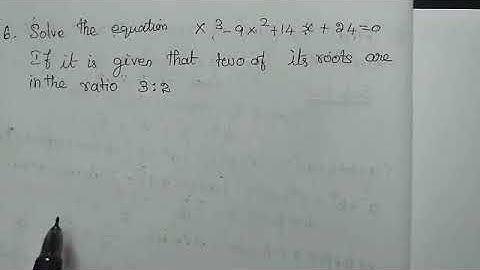 6. Solve the equation x³-9x²+14x+24=0
If it is given that two of its roots are
in the ratio 3:2